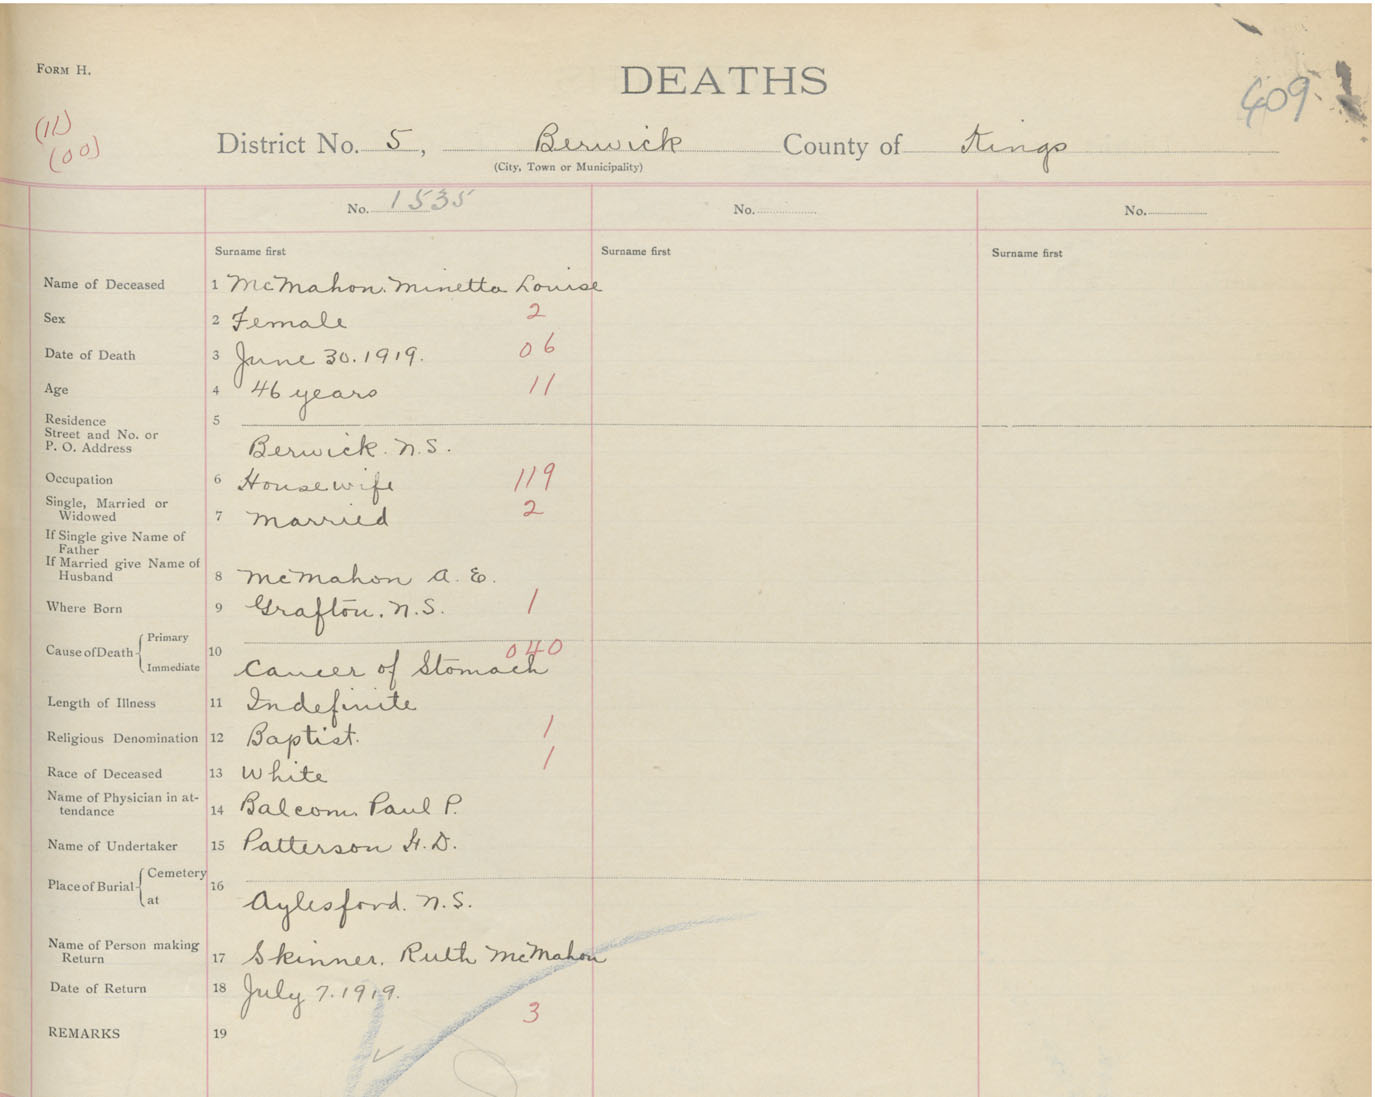 FORM H.
DEATHS
409
(11)
(00)
District No. 5, Berwick County of Kings
(City, Town or Municipality)
No. 1535 No. No.
Surname first Surname first Surname first
Name of Deceased 1 McMahon. Minetta Louise
Sex 2 Female 2
Date of Death 3 June 30. 1919. 06
Age 4 46 years 11
Residence 5
Street and No. or
P. O. Address Berwick. N.S.
Occupation 6 Housewife 119
Single, Married or
Widowed 7 Married 2
If Single give Name of
Father
If Married give Name of
Husband 8 McMahon A. E.
Where Born 9 Grafton. N.S. 1
Cause of Death Primary 10 040
Immediate Cancer of Stomach
Length of Illness 11 Indefinite
Religious Denomination 12 Baptist. 1
Race of Deceased 13 White 1
Name of Physician in at-
tendance 14 Balcom, Paul P.
Name of Undertaker 15 Patterson H.D.
Place of Burial Cemetery 16
at Aylesford. N.S.
Name of Person making
Return 17 Skinner. Ruth McMahon
Date of Return 18 July 7. 1919.
3
REMARKS 19